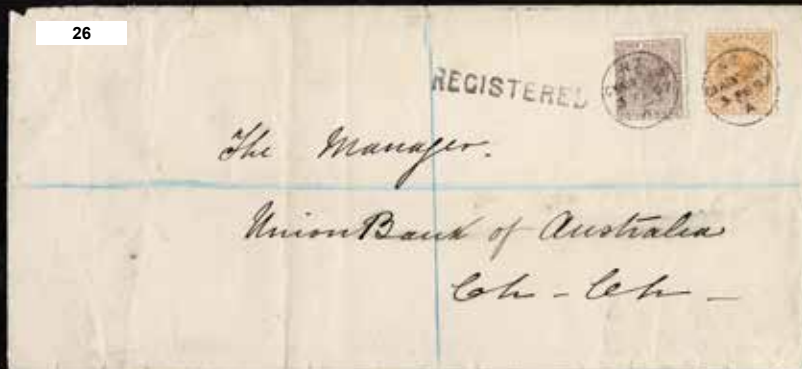 26
REGISTERED
The Manager.
Union Bank of Australia
Ch - Ch -